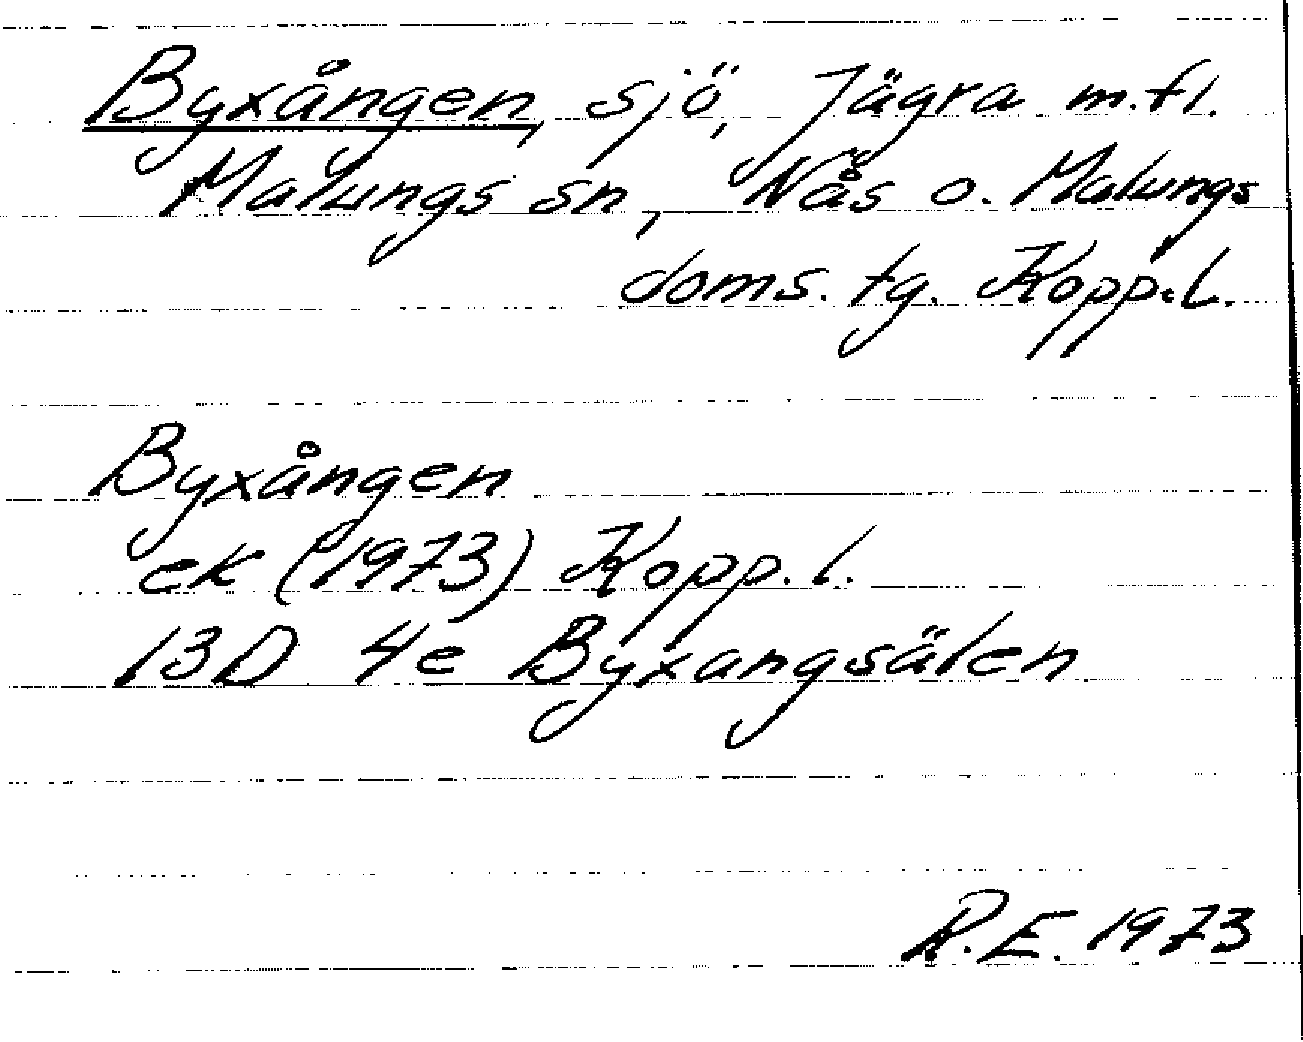 Byxången, sjö, Jägra m.fl.
Malungs sn, Nås o. Malungs
doms. tg. Kopp.l.
Byxången
ek (1973) Kopp. l.
13D 4e Byxangsälen
R.E. 1973